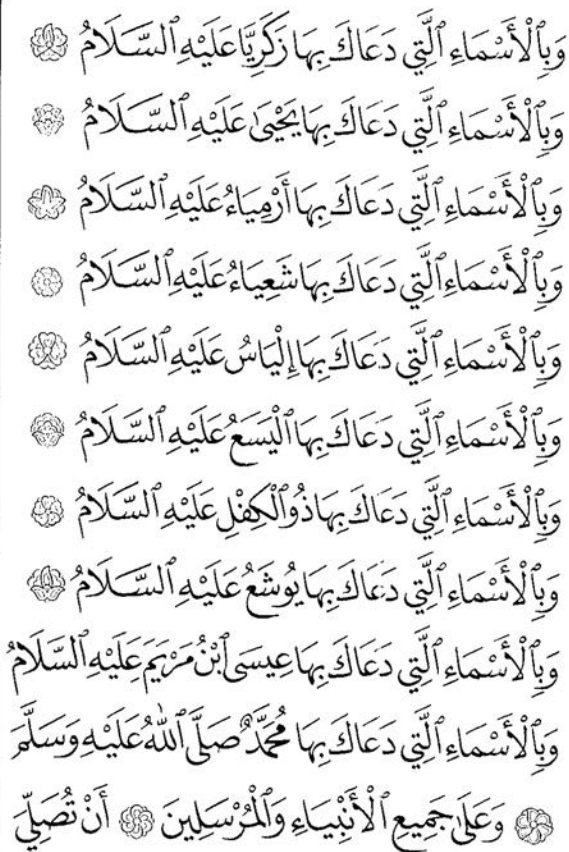 وَبِٱلْأَسْمَاءِ ٱلَّتِي دَعَاكَ بِهَا زَكَرِيَّا عَلَيْهِ ٱلسَّلَامُ
وَبِٱلْأَسْمَاءِ ٱلَّتِي دَعَاكَ بِهَا يَحْيَىٰ عَلَيْهِ ٱلسَّلَامُ
وَبِٱلْأَسْمَاءِ ٱلَّتِي دَعَاكَ بِهَا أَرْمِيَاءُ عَلَيْهِ ٱلسَّلَامُ
وَبِٱلْأَسْمَاءِ ٱلَّتِي دَعَاكَ بِهَا شَعِيَاءُ عَلَيْهِ ٱلسَّلَامُ
وَبِٱلْأَسْمَاءِ ٱلَّتِي دَعَاكَ بِهَا إِلْيَاسُ عَلَيْهِ ٱلسَّلَامُ
وَبِٱلْأَسْمَاءِ ٱلَّتِي دَعَاكَ بِهَا ٱلْيَسَعُ عَلَيْهِ ٱلسَّلَامُ
وَبِٱلْأَسْمَاءِ ٱلَّتِي دَعَاكَ بِهَا ذُو ٱلْكِفْلِ عَلَيْهِ ٱلسَّلَامُ
وَبِٱلْأَسْمَاءِ ٱلَّتِي دَعَاكَ بِهَا يُوشَعُ عَلَيْهِ ٱلسَّلَامُ
وَبِٱلْأَسْمَاءِ ٱلَّتِي دَعَاكَ بِهَا عِيسَى ٱبْنُ مَرْيَمَ عَلَيْهِ ٱلسَّلَامُ
وَبِٱلْأَسْمَاءِ ٱلَّتِي دَعَاكَ بِهَا مُحَمَّدٌ صَلَّى ٱللَّهُ عَلَيْهِ وَسَلَّمَ
وَعَلَىٰ جَمِيعِ ٱلْأَنْبِيَاءِ وَٱلْمُرْسَلِينَ أَنْ تُصَلِّيَ